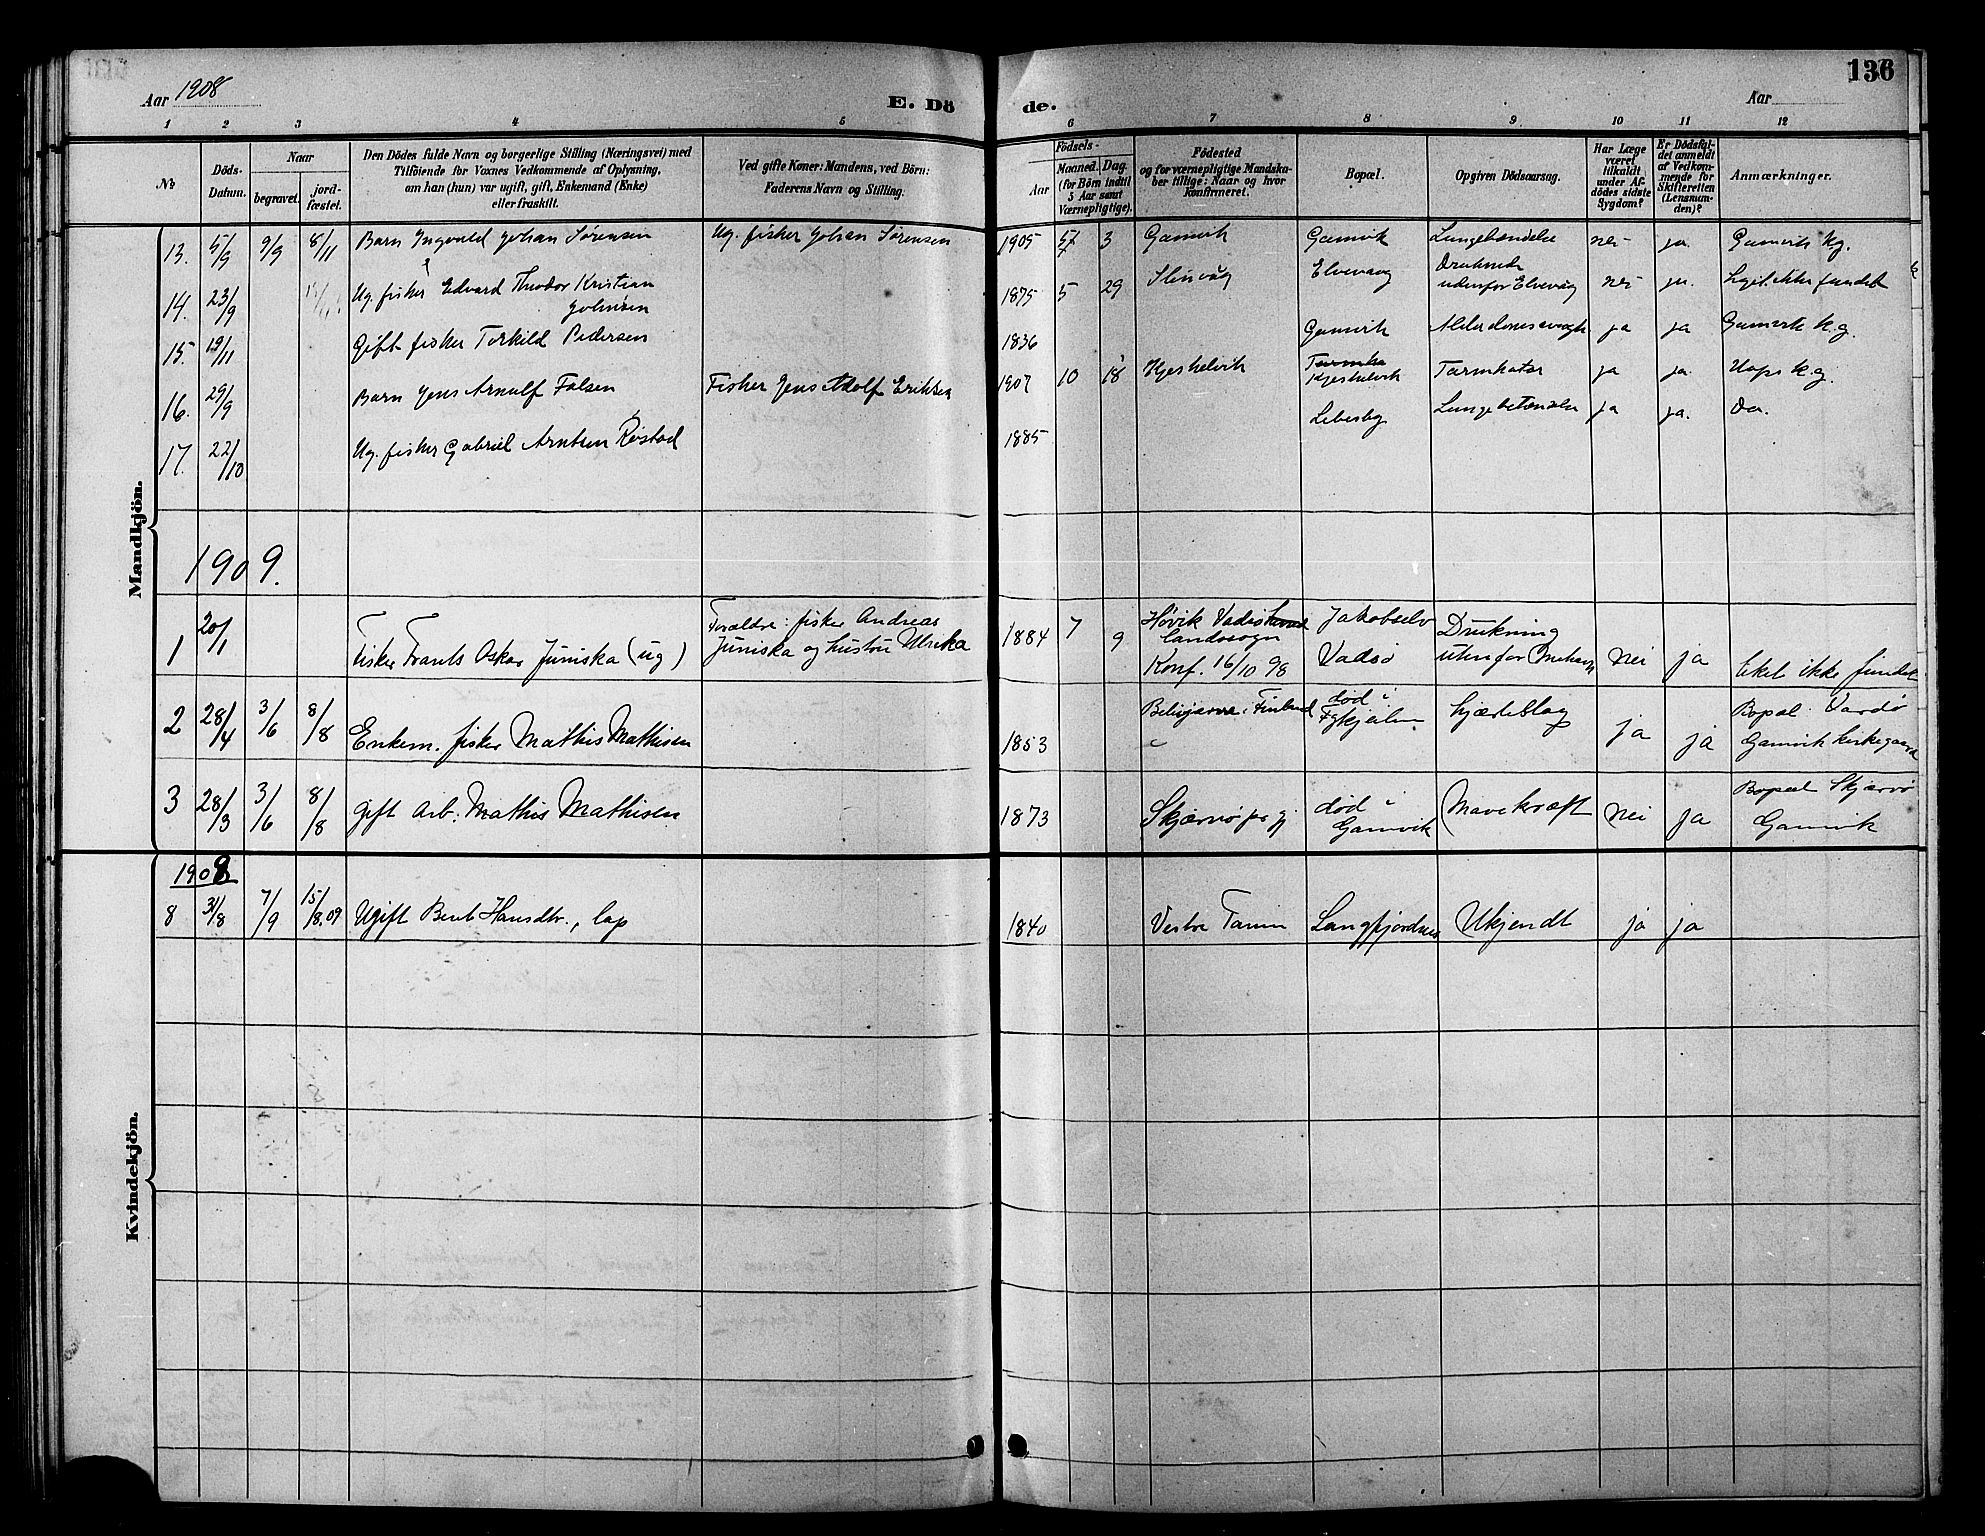 Aar 1908
E. Dö
de.
Aar
136
1 2 3 4 5 6 7 8 9 10 11 12
No
Döds-Datum.
Naar
begravet.
jord-fæstet.
Den Dödes fulde Navn og borgerlige Stilling (Næringsvei) med
Tilföiende for Voxnes Vedkommende af Oplysning,
om han (hun) var ugift, gift, Enkemand (Enke)
eller fraskilt.
Ved gifte Koner: Mandens, ved Börn:
Faderens Navn og Stilling.
Födsels-
Aar
Maaned. Dag
(for Börn indtil
5 Aar samt
Værnepligtige).
Födested
og for værnepligtige Mandska-
ber tillige: Naar og hvor
konfirmeret.
Bopæl.
Opgiven Dödsaarsag.
Har Læge
været
tilkaldt
under Af-
dödes sidste
Sygdom?
Er Dödsfal-
det anmeldt
af Vedkom-
mende for
Skifteretten
(Lensman-
den)?
Anmærkninger.
Mandkjön.
13. 5/9 9/9 8/11 Barn Ingvald Johan Sørensen Ug. fisker Johan Sørensen 1905 3 Gamvik Gamvik nei ja. Gamvik k.g.
14. 23/9 Ug. fisker Edvard Theodor Kristian
Johnsen 1875 5 29 Elvevaag
udenfor Elvevåg nei ja. Liget ikke fundet
15. 19/11 Gift fisker Terkild Pedersen 1836 Gamvik ja ja Gamvik k.g.
16. 29/9 Barn Jens Arnulf Falsen Fisker Jens Adolf Eriksen 1907 10 18 Kjeskelvik
Kjeskelvik Tarmkatar ja ja. Hops k.g.
17. 22/10 Ug. fisker Gabriel Arntsen Røstad 1885 Lebesby Lungebetændelse ja ja. Do.
1909.
1 20/1 Fisker Frants Oskar Juniska (ug) Forældre: fisker Andreas
Juniska og hustru Ulrika 1884 7 9 Høvik Vadsø
landsogn
Konf. 16/10 98 Jakobselv
Vadsø Drukning
utenfor Mehavn nei ja Liket ikke fundet
2 28/4 3/6 8/8 Enkem. fisker Mathis Mathisen 1853 i Finland død i
hjerteslag ja ja Bopæl: Vardø
Gamvik kirkegaard
3 28/3 3/6 8/8 gift arb. Mathis Mathisen 1873 Skjærvø prgj død i
Gamvik Mavekræft nei ja Bopæl Skjærvø
Gamvik
Kvindekjön.
1908
8 31/8 7/9 15/8.09 Ugift Berit Hansdtr., lap 1840 Vestre Tanen Langfjordnes Ukjendt ja ja